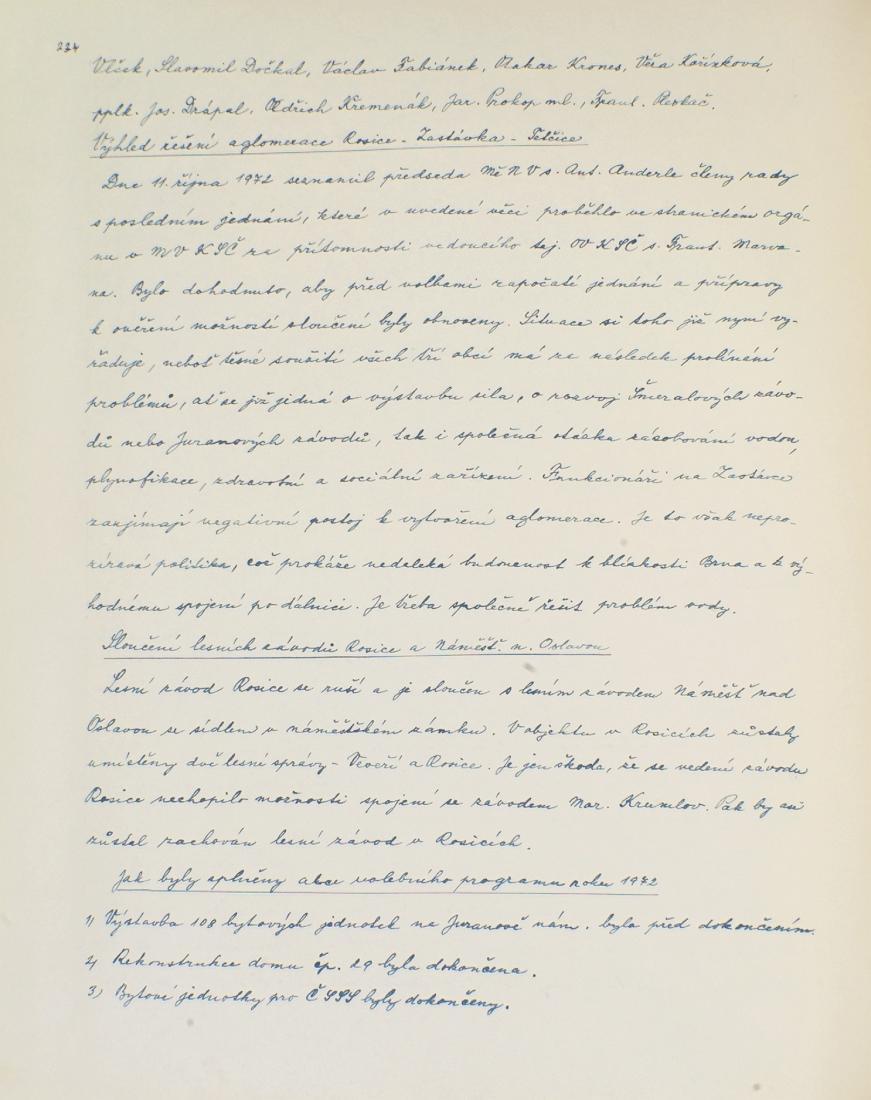 234
Vlček, Slavomil Dočkal, Václav Fabiánek, Otakar Krones, Věra Kořínková,
pplk. Jos. Drápal, Oldřich Křemenák, Jar. Prokop ml., Frant. Pevkač.
Výhled řešení aglomerace Rosice - Zastávka - Tetčice
Dne 11. října 1972 seznamil předseda MěNV s. Ant. Anderle členy rady
s posledním jednání, které v uvedené věci proběhlo ve stranickém orgá-
nu v MV KSČ za přítomnosti vedoucího taj. OV KSČ s. Frant. Marva-
na. Bylo dohodnuto, aby před volbami započatí jednání a přípravy
k ověření možností sloučení byly obnoveny. Situace si toho již nyní vy-
žaduje, neboť těsné soužití všech tří obcí má za následek prolínání
problémů, ať se již jedná o výstavbu sila, o rozvoj Šmeralových závo-
dů nebo Juranových závodů, tak i společná otázka zásobování vodou,
plynofikace, zdravotní a sociální zařízení. Funkcionáři na Zastávce
zaujímají negativní postoj k vytvoření aglomerace. Je to však nepro-
zíravá politika, což prokáže nedaleká budoucnost k blízkosti Brna a k vý-
hodnému spojení po dálnici. Je třeba společně řešit problém vody.
Sloučení lesních závodů Rosice a Náměšť. n. Oslavou
Lesní závod Rosice se ruší a je sloučen s lesním závodem Náměšť nad
Oslavou se sídlem v náměšťském zámku. V objektu v Rosicích zůstaly
umístěny dvě lesní správy - Veveří a Rosice. Je jen škoda, že se vedení závodu
Rosice nechopilo možnosti spojení se závodem Mor. Krumlov. Pak by asi
zůstal zachován lesní závod v Rosicích.
Jak byly splněny akce volebního programu roku 1972
1) Výstavba 108 bytových jednotek na Juranově nám. byla před dokončením.
2) Rekonstrukce domu čp. 29 byla dokončena.
3) Bytové jednotky pro ČSSS byly dokončeny.